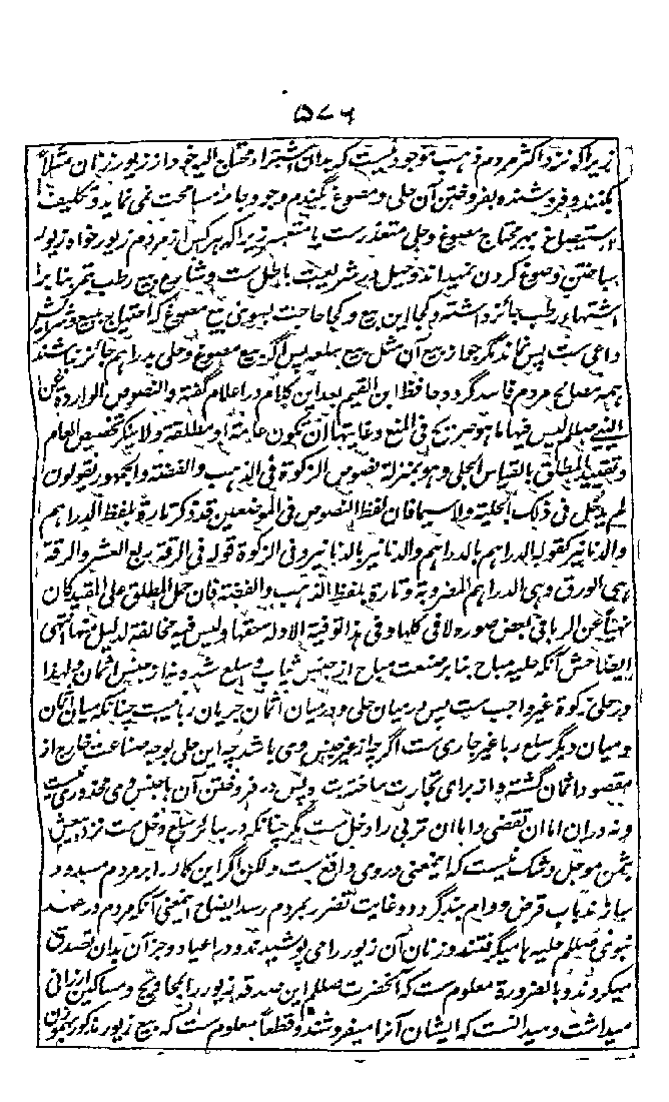 ۵۷۶
زیراکه نزد اکثر مردم ذهب موجود نیست که بدان اشترا و محتاج الیه خود از زیور زنان مثلاً
بکنند و فروشنده بفروختن آن حلی و مصوغ بگندم و جو و جامه مسامحت نمی نماید و تکلیف
استصیاغ بهر محتاج مصوغ و حلی متعذر ست یا متعسر زیراکه هر کس از مردم زیور خواه زیور
ساختن و صوغ کردن نمیداند و حیل در شریعت باطل ست و شارع بیع رطب بتمر بنا بر
اشتهای رطب جائز داشته و کجا این بیع و کجا حاجت بسوی بیع مصوغ که احتیاج ببیع و شرایش
داعی ست پس نماند مگر جواز بیع آن مثل بیع سلعه پس اگر بیع مصوغ و حلی بدراهم جائز نباشد
همه مصالح مردم فاسد گردد و حافظ ابن القیم بعد این کلام در اعلام گفته و النصوص الواردة عن
النبی صللم لیس فیها ما هو صریح فی المنع و غایتها ان تکون عامة او مطلقة و لا ینکر تخصیص العام
و تقیید المطلق بالقیاس الجلی و هو بمنزلة نصوص الزکوة فی الذهب و الفضة و الجمهور یقولون
لم یدخل فی ذلک الحلیة و لا سیما فان لفظ النصوص فی الموضعین قد ذکر تارة بلفظ الدراهم
و الدنانیر کقوله الدراهم بالدراهم و الدنانیر بالدنانیر و فی الزکوة قوله فی الرقة ربع العشر و الرقة
هی الورق و هی الدراهم المضروبة و تارة بلفظ الذهب و الفضة فان حمل المطلق علی المقید کان
نهیاً عن الربا فی بعض صوره لا فی کلها و فی هذا توفیة الادلة حقها و لیس فیه مخالفة لدلیل منها انتهی
ایضاحش آنکه حلیه مباح بنا بر صنعت مباح از جنس ثیاب و سلع شده نه از جنس اثمان و لهذا
در حلی زکوة غیر واجب ست پس در میان حلی و در میان اثمان جریان ربا نیست چنانکه میان اثمان
و میان دیگر سلع ربا غیر جاری ست اگر چه از غیر جنس وی باشد چه این حلی بوجه صناعت خارج از
مقصود اثمان گشته و از برای تجارت ساخته شده پس در فروختن آن با جنس وی محذوری نیست
و نه دران اما ان تقضی و اما ان تربی را دخل ست مگر چنانکه در سائر سلع دخل ست نزد بیعش
بثمن موجل و شک نیست که این معنی در وی واقع ست و لکن اگر این کار را بر مردم مسدود
سازند باب قرض و وام بند گردد و غایت تضرر بمردم رسد ایضاح این معنی آنکه مردم در عهد
نبوی صللم حلیه ها میگرفتند و زنان آن زیور را می پوشیدند و در اعیاد و جز آن بدان تصدق
میکردند و بالضرورة معلوم ست که آنحضرت صللم این صدقه زیور را بمحاویج و مساکین ارزانی
میداشت و میدانست که ایشان آنرا میفروشند و قطعاً معلوم ست که بیع زیور مذکور بهموزن